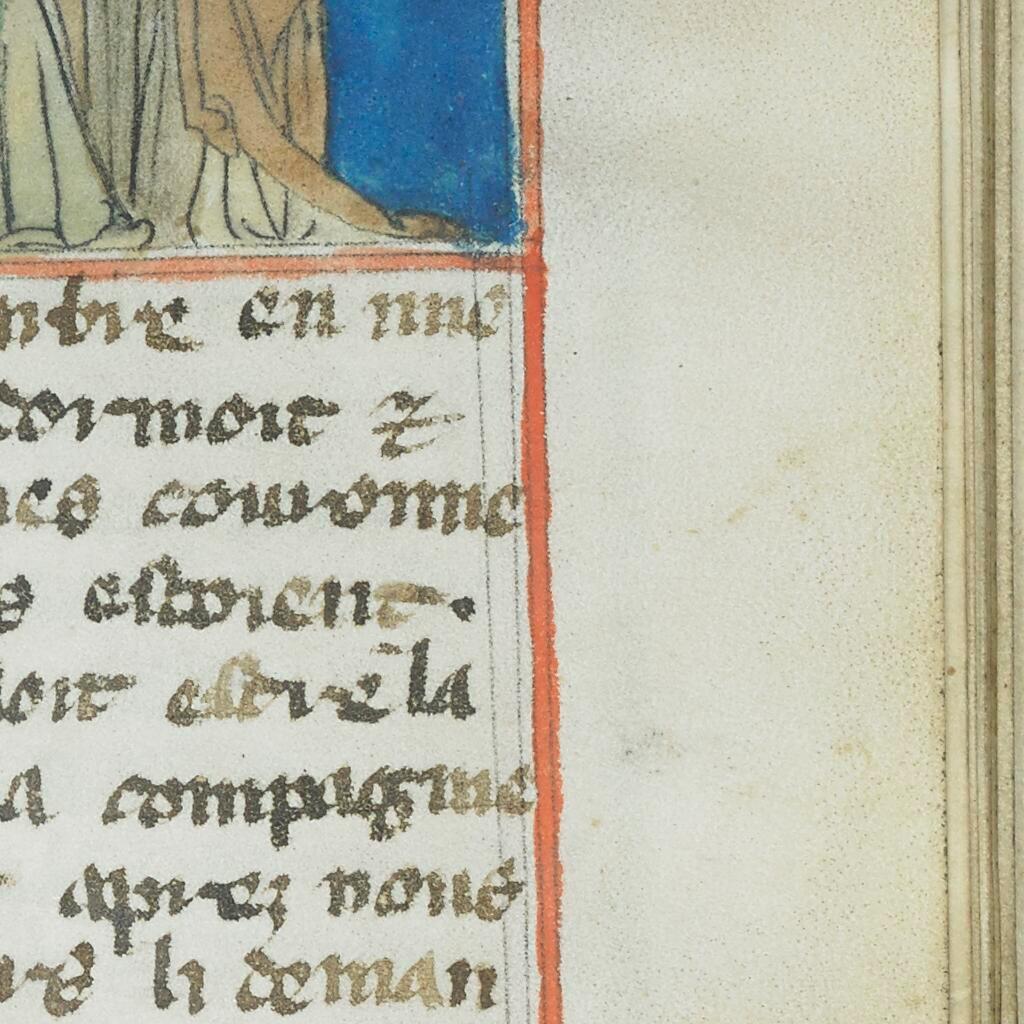 nbre en une
dormoit ⁊
nes couronne
s estoient.
loit estre la
a compagnie
aprez nous
li deman